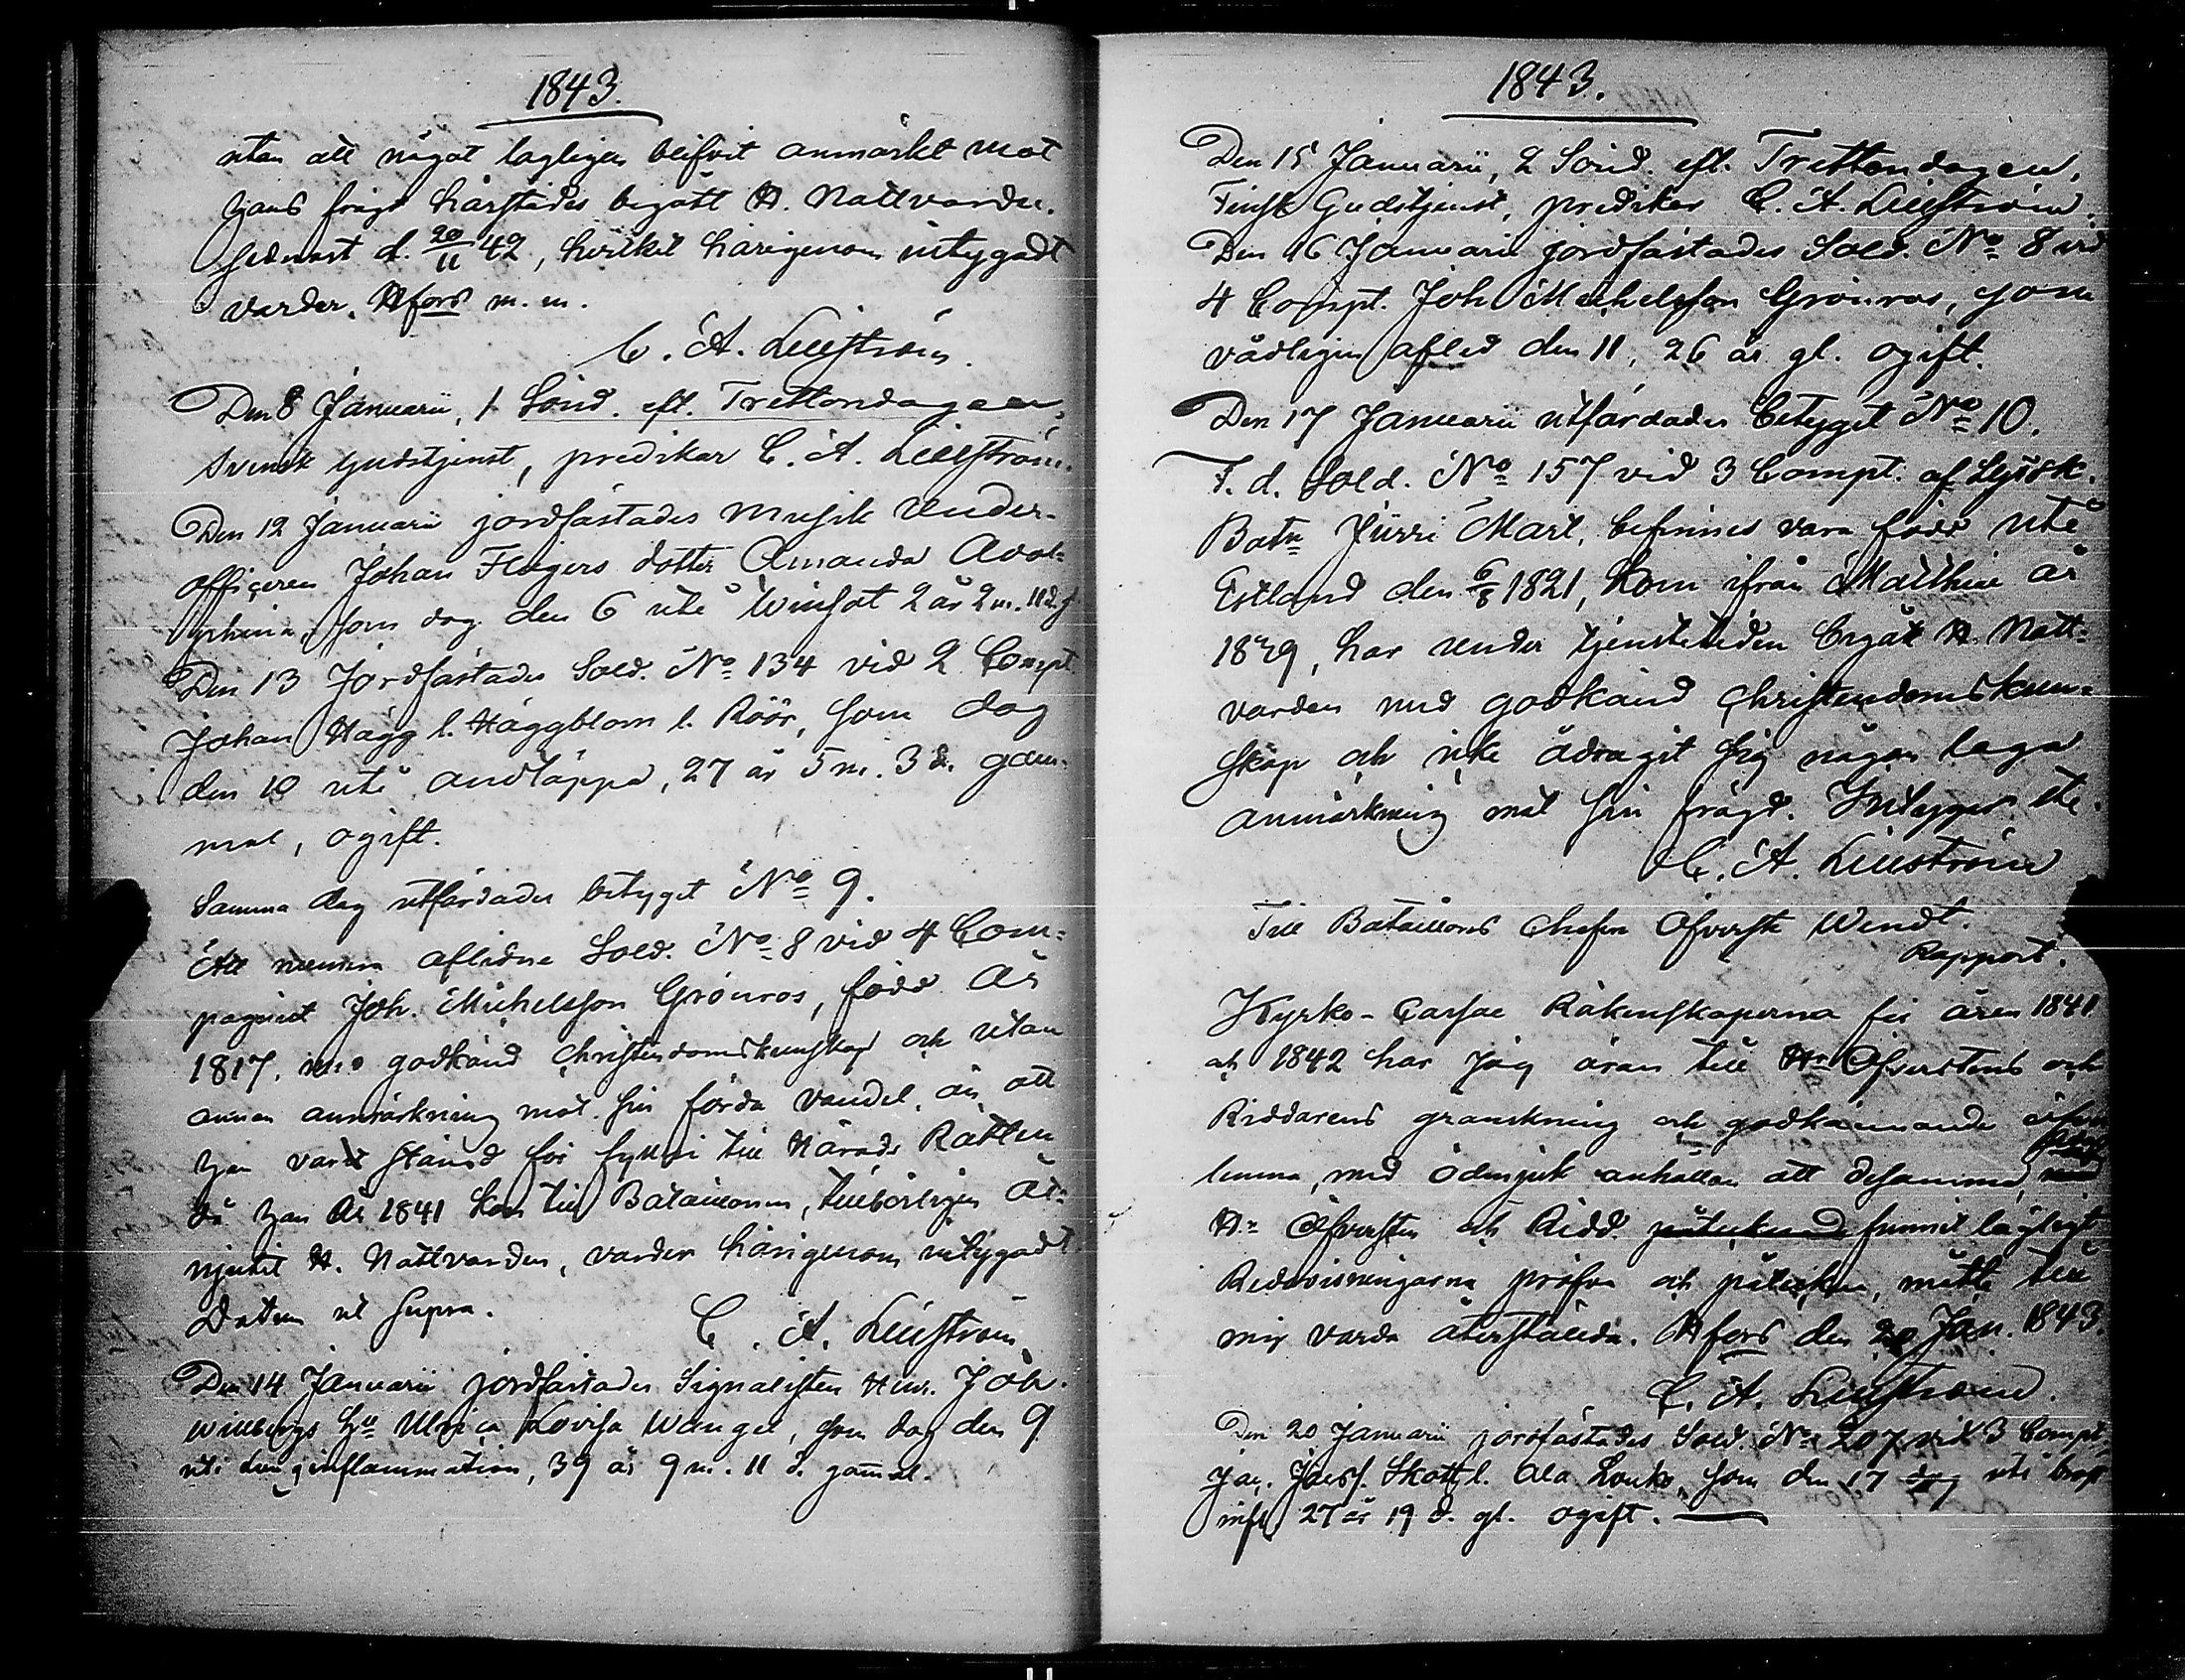 1843.
utan att något lagligen blifvit anmärkt mot
hans frägd härstädes begått H. Nattvarden
sednast d. 20/11 42, hvilket härigenom intygadt
varder. Hfors m. m.
C. A. Lillström
Den 8 Januarii, 1 Sönd. eft. Trettondagen,
Svensk Gudstjenst, predikar C. A. Lillström.
Den 12 Januarii jordfästades Musik Under-
officeren Johan Flagers dotter Amanda Adol-
phina, som dog den 6 uti Winsot 2 år 2 m. 11 d. g.
Den 13 Jordfästades Sold. No 134 vid 2 Compt.
Johan Hägg l. Häggblom l. Röör, som dog
den 10 uti andtäppa, 27 år 5 m. 3 d. gam-
mal, ogift.
Samma dag utfärdades betyget No 9.
Att numera aflidne Sold. No 8 vid 4 Com-
pagniet Joh. Michelsson Grönros, född År
1817, med godkänd Christendomskunskap och utan
annan anmärkning mot sin förda vandel, än att
han varit stämd för fylleri till Härads Rätten
då han År 1841 kom till Bataillonen, tillbörligen åt-
njutit H. Nattvarden, varder härigenom intygadt
Datum ut supra.
C. A. Lillström
Den 14 Januarii jordfästades Signalisten Henr. Joh.
Willbergs Hu Ulrica Lovisa Wängel, som dog den 9
uti lunginflammation, 39 år 9 m. 11 d. gammal.
1843.
Den 15 Januarii, 2 Sönd. eft. Trettondagen,
Finsk Gudstjenst, predikar C. A. Lillström.
Den 16 Januarii jordfästades Sold. No 8 vid
4 Compt. Joh Michelsson Grönros, som
vådligen afled den 11, 26 år gl. ogift.
Den 17 Januarii utfärdades betyget No 10.
F. d. Sold. No 157 vid 3 Compt. af Lifsk.
Batn Jürri Mart, befinnes vara född uti
Estland den 6/8 1821, kom ifrån Matthiæ år
1839, har under tjenstetiden begått H. Natt-
varden med godkänd Christendomskun-
skap och icke ådragit sig någon laga
anmärkning mot sin frägd. Intygar etc.
C. A. Lillström
Till Bataillons Chefen Öfverste Wendt.
Rapport.
Kyrko-Cassae Räkenskaperna för åren 1841
och 1842 har jag äran till Hr Öfverstens och
Riddarens granskning och godkännande öfver-
lemna, med ödmjuk anhållan att desamma, sedan
Hr Öfversten och Ridd. påtecknad funnit lägligt
Redovisningarna pröfva och påteckna, måtte till
mig varda återstälda. Hfors den 20 Jan. 1843.
C. A. Lillström.
Den 20 Januarii jordfästades Sold. No 207 vid 3 Compt.
Jac. Jacss. Skott l. Ala Louko, som den 17 dog uti bröst
infl. 27 år 19 d. gl. ogift.